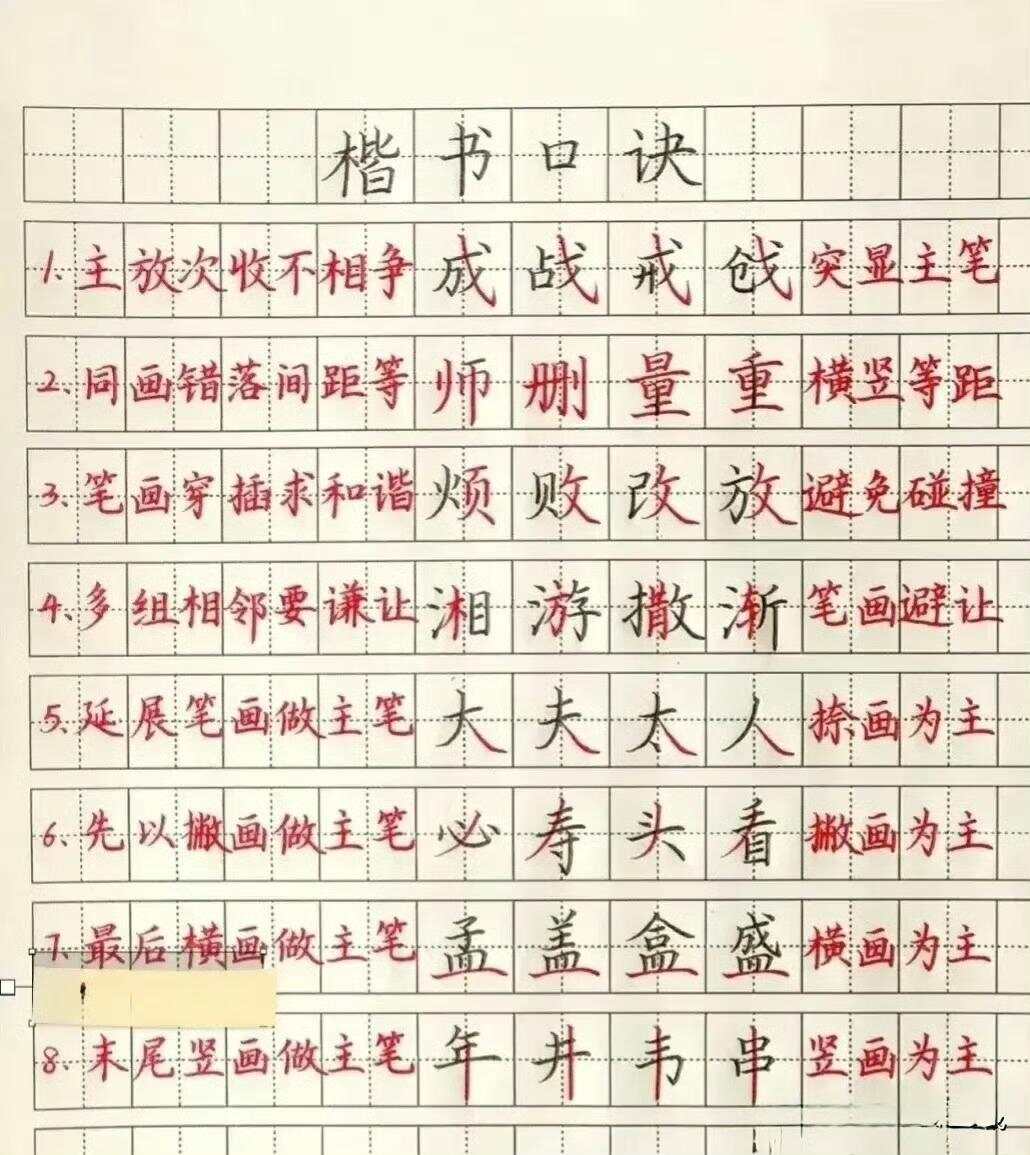 楷书口诀
1.主放次收不相争 成战戒戗 突显主笔
2.同画错落间距等 师删量重 横竖等距
3.笔画穿插求和谐 烦败改放 避免碰撞
4.多组相邻要谦让 湘游撒渐 笔画避让
5.延展笔画做主笔 大夫太人 捺画为主
6.先以撇画做主笔 必寿头看 撇画为主
7.最后横画做主笔 孟盖盒盛 横画为主
8.末尾竖画做主笔 年井韦串 竖画为主